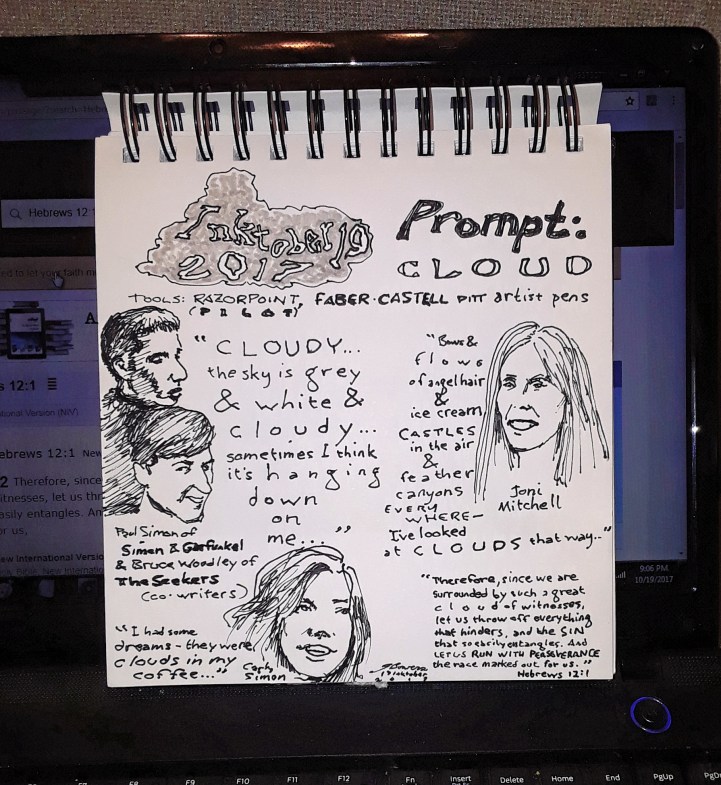 Hebrews 12:1
ed to let your faith
s 12:1
ational Version (NIV)
ebrews 12:1 New
2 Therefore, since
itnesses, let us thr
asily entangles. An
or us,
ew International Versio
9:06 PM
10/19/2017
Inktober 19
2017
Prompt:
CLOUD
TOOLS: RAZORPOINT, FABER-CASTELL PITT artist pens
(PILOT)
"CLOUDY...
the sky is grey
& white &
cloudy...
sometimes I think
it's hanging
down
on
me..."
Paul Simon of
Simon & Garfunkel
& Bruce Woodley of
The Seekers
(co-writers)
"Bows &
flows
of angel hair
&
ice cream
CASTLES
in the air
&
feather
canyons
EVERY
WHERE-
I've looked
at CLOUDS that way..."
Joni
Mitchell
"I had some
dreams - they were
clouds in my
coffee..."
Carly
Simon
"Therefore, since we are
surrounded by such a great
cloud of witnesses,
let us throw off everything
that hinders, and the SIN
that so easily entangles. And
LET US RUN WITH PERSEVERANCE
the race marked out for us."
Hebrews 12:1
F8
F9
F10
F11
F12
Fn
Insert
Delete
Home
End
PgUp